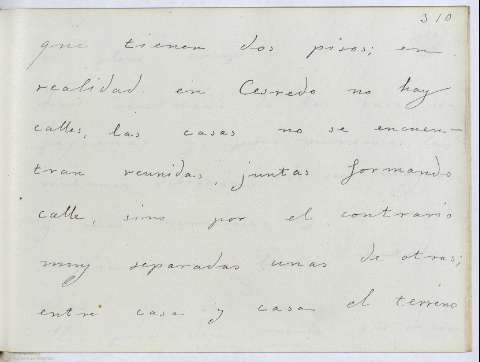 310
que tienen dos pisos; en
realidad en Cesredo no hay
calles, las casas no se encuen-
tran reunidas, juntas formando
calle, sino por el contrario
muy separadas unas de otras;
entre casa y casa el terreno